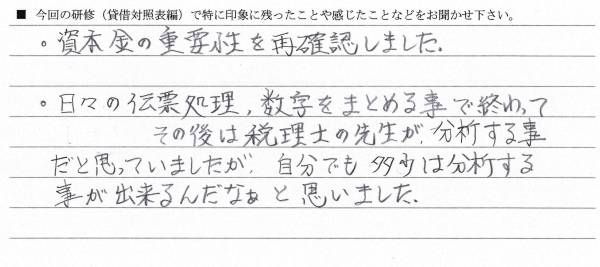 ■ 今回の研修（貸借対照表編）で特に印象に残ったことや感じたことなどをお聞かせ下さい。
。資本金の重要性を再確認しました.
。日々の伝票処理,数字をまとめる事で終わって
その後は税理士の先生が,分析する事
だと思っていましたが,自分でも多少は分析する
事が出来るんだなぁと思いました.